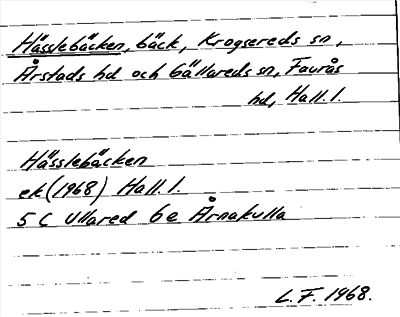 Hässlebäcken, bäck, Krogsereds sn,
Årstads hd och Gällareds sn, Faurås
hd, Hall. l.
Hässlebäcken
ek (1968) Hall. l.
5 C Ullared 6e Årnakulla
L. F. 1968.